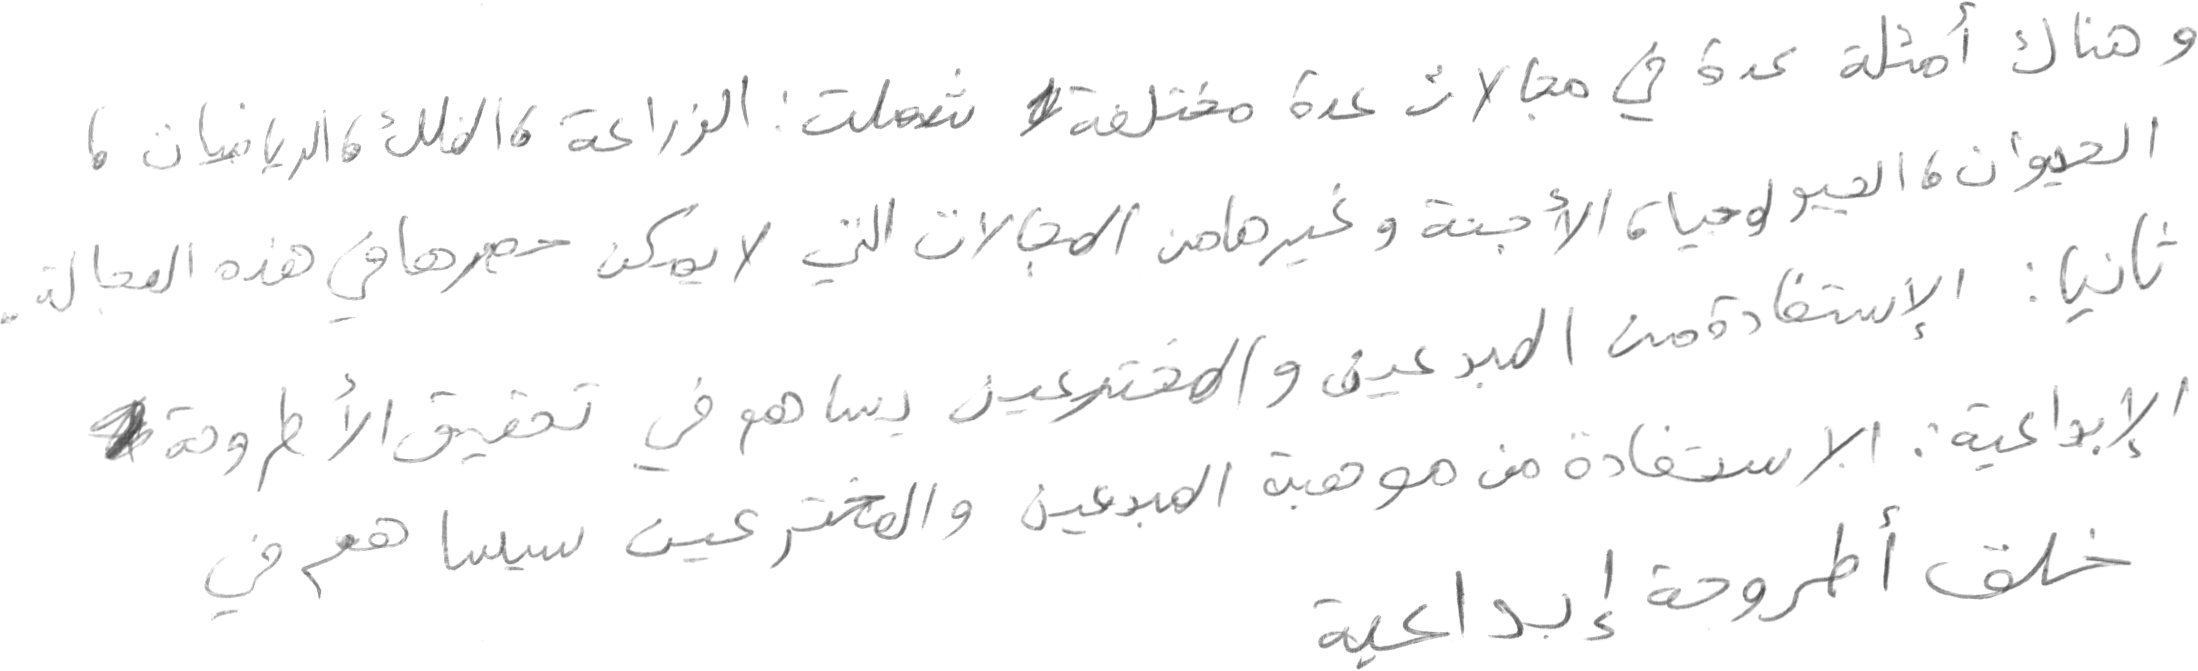 وهناك أمثلة عدة في مجالات عدة مختلفة شملت: الزراعة، الفلك، الرياضيات،
الحيوان، الجيولوجيا، الأجنة وغيرها من المجالات التي لا يمكن حصرها في هذه العجالة.
ثانيا: الإستفادة من المبدعين والمخترعين يساهم في تحقيق الأطروحة
الإبداعية: الاستفادة من موهبة المبدعين والمخترعين سيساهم في
خلق أطروحة إبداعية